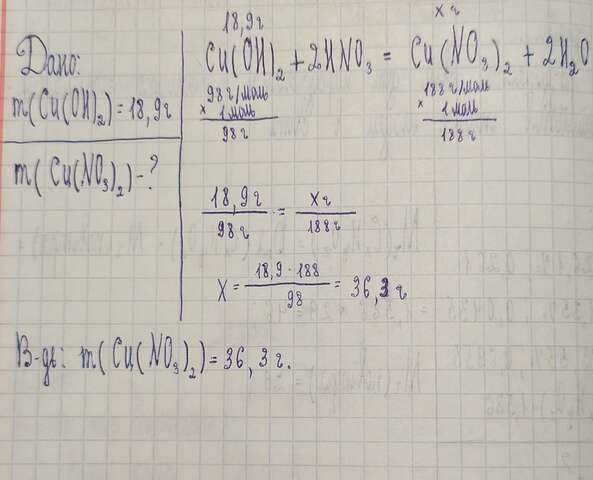 Дано:
m(Cu(OH)₂)=18,9г
m(Cu(NO₃)₂)-?
18,9г
xг
Cu(OH)₂+2HNO₃ = Cu(NO₃)₂ + 2H₂O
98г/моль
188г/моль
× 1 моль
× 1 моль
98г
188г
18,9г/98г = xг/188г
X = 18,9·188/98 = 36,3г
В-дь: m(Cu(NO₃)₂)=36,3г.